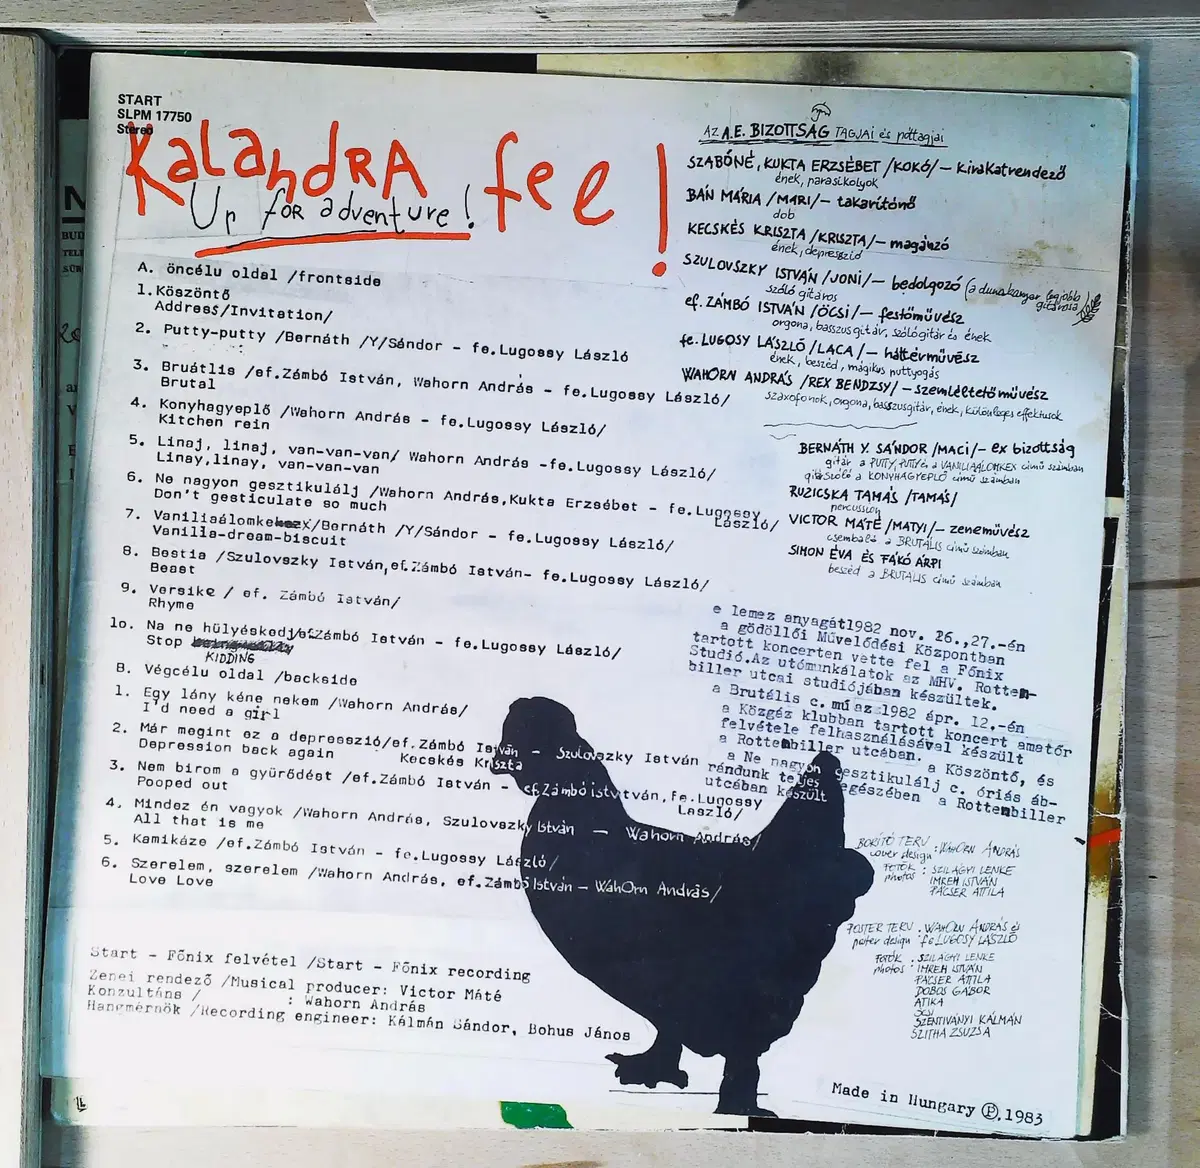 START
SLPM 17750
Stereo
KaLandRA fel!
Up for adventure!
A. öncélu oldal /frontside
1. Köszöntő
Address/Invitation/
2. Putty-putty /Bernáth /Y/Sándor - fe.Lugossy László
3. Bruátlis /ef.Zámbó István, Wahorn András - fe.Lugossy László/
Brutal
4. Konyhagyeplő /Wahorn András - fe.Lugossy László/
Kitchen rein
5. Linaj, linaj, van-van-van/ Wahorn András -fe.Lugossy László/
Linay,linay, van-van-van
6. Ne nagyon gesztikulálj /Wahorn András,Kukta Erzsébet - fe.Lugossy László/
Don't gesticulate so much
7. Vaniliaálomkekszx/Bernáth /Y/Sándor - fe.Lugossy László/
Vanilla-dream-biscuit
8. Bestia /Szulovszky István,ef.Zámbó István- fe.Lugossy László/
Beast
9. Versike / ef. Zámbó István/
Rhyme
10. Na ne hülyéskedj/ef.Zámbó István - fe.Lugossy László/
Stop
KIDDING
B. Végcélu oldal /backside
1. Egy lány kéne nekem /Wahorn András/
I'd need a girl
2. Már megint ez a depresszió/ef.Zámbó István - Szulovszky István
Depression back again Kecskés Kriszta
3. Nem birom a gyürődést /ef.Zámbó István - ef.Zámbó istvtván,fe.Lugossy László/
Pooped out
4. Mindez én vagyok /Wahorn András, Szulovszky István - Wahorn András/
All that is me
5. Kamikáze /ef.Zámbó István - fe.Lugossy László/
6. Szerelem, szerelem /Wahorn András, ef.Zámbó István - WahOrn András/
Love Love
Start - Főnix felvétel /Start - Főnix recording
Zenei rendező /Musical producer: Victor Máté
Konzultáns / : Wahorn András
Hangmérnök /Recording engineer: Kálmán Sándor, Bohus János
AZ A.E. BIZOTTSÁG TAGJAI és póttagjai
SZABÓNÉ, KUKTA ERZSÉBET /KOKÓ/ - kirakatrendező
ének, parasikolyok
BÁN MÁRIA /MARI/ - takarítónő
dob
KECSKÉS KRISZTA /KRISZTA/ - magánzó
ének, depresszió
SZULOVSZKY ISTVÁN /JONI/ - bedolgozó (a dunakanyar legjobb gitárosa)
szóló gitáros
ef. ZÁMBÓ ISTVÁN /ÖCSI/ - festőművész
orgona, basszusgitár, szólógitár és ének
fe. LUGOSY LÁSZLÓ /LACA/ - háttérművész
ének, beszéd, mágikus puttyogás
WAHORN ANDRÁS /REX BENDZSY/ - szemléltetőművész
szaxofonok, orgona, basszusgitár, ének, különleges effektusok
BERNÁTH Y. SÁNDOR /MACI/ - ex bizottság
gitár a PUTTY, PUTTY és a VANILIAÁLOMKEX című számban
gitárszóló a KONYHAGYEPLŐ című számban
RUZICSKA TAMÁS /TAMÁS/
percussion
VICTOR MÁTÉ /MATYI/ - zeneművész
csembaló a BRUTÁLIS című számban
SIMON ÉVA ÉS FÁKÓ ÁRPI
beszéd a BRUTÁLIS című számban
e lemez anyagát1982 nov. 26.,27.-én
a gödöllői Művelődési Központban
tartott koncerten vette fel a Főnix
Studió.Az utómunkálatok az MHV. Rottem-
biller utcai studiójában készültek.
a Brutális c. mü az 1982 ápr. 12.-én
a Közgáz klubban tartott koncert amatőr
felvétele felhasználásával készült
a Rottembiller utcában. a Köszöntő, és
a Ne nagyon gesztikulálj c. óriás áb-
rándunk teljes egészében a Rottembiller
utcában készült
BORÍTÓ TERV : WAHORN ANDRÁS
cover design
FOTÓK : SZILÁGYI LENKE
photos IMREH ISTVÁN
PÁCSER ATTILA
POSTER TERV : WAHORN ANDRÁS és
poster design : fe LUGOSY LÁSZLÓ
FOTÓK : SZILÁGYI LENKE
photos : IMREH ISTVÁN
PÁCSER ATTILA
DOBOS GÁBOR
ATIKA
SZENTIVÁNYI KÁLMÁN
SZITHA ZSUZSA
Made in Hungary Ⓟ.1983